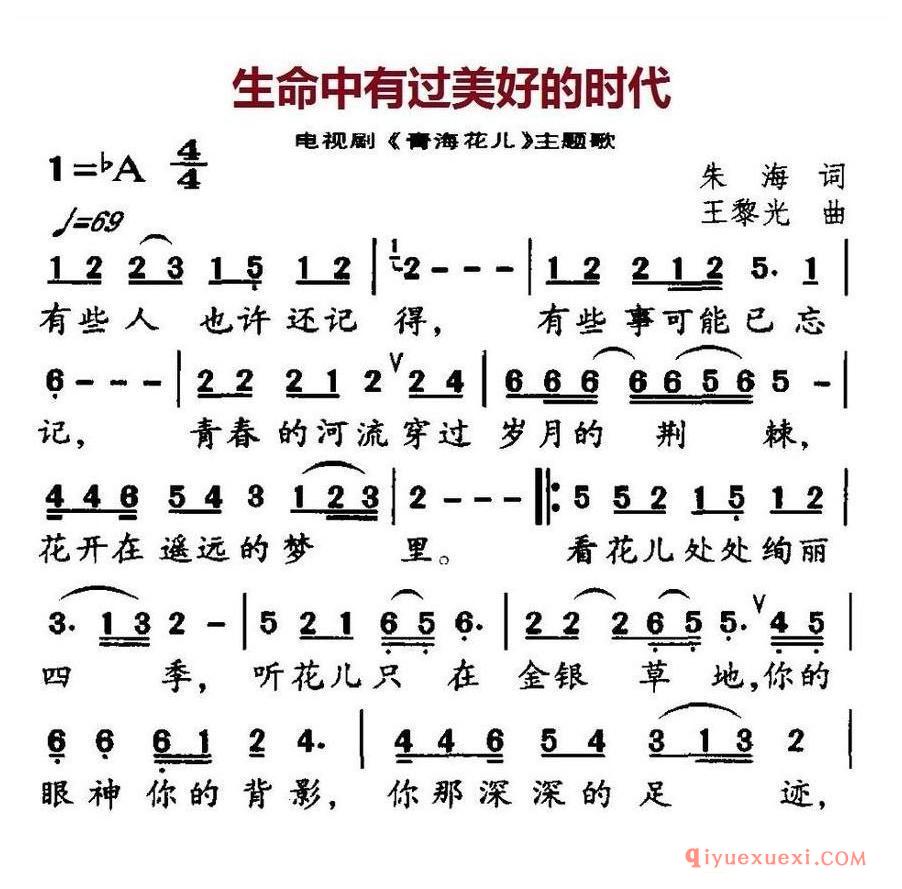 生命中有过美好的时代
电视剧《青海花儿》主题歌
1=♭A 4/4
朱海 词
♩=69
王黎光 曲
1 2 2 3 1 5 1 2 | 1 2 - - - | 1 2 2 1 2 5. 1 |
有些人 也许还记 得， 有些事可能已忘
6 - - - | 2 2 2 1 2 ∨ 2 4 | 6 6 6 6 6 5 6 5 - |
记， 青春的河流穿过 岁月的 荆 棘，
4 4 6 5 4 3 1 2 3 | 2 - - - |: 5 5 2 1 5 1 2 |
花开在遥远的梦 里。 看花儿处处绚丽
3. 1 3 2 - | 5 2 1 6 5 6. | 2 2 2 6 5 5. ∨ 4 5 |
四 季，听花儿只 在 金银 草 地，你的
6 6 6 1 2 4. | 4 4 6 5 4 3 1 3 2 |
眼神你的背影， 你那深深的足 迹，
qiyuexuexi.com